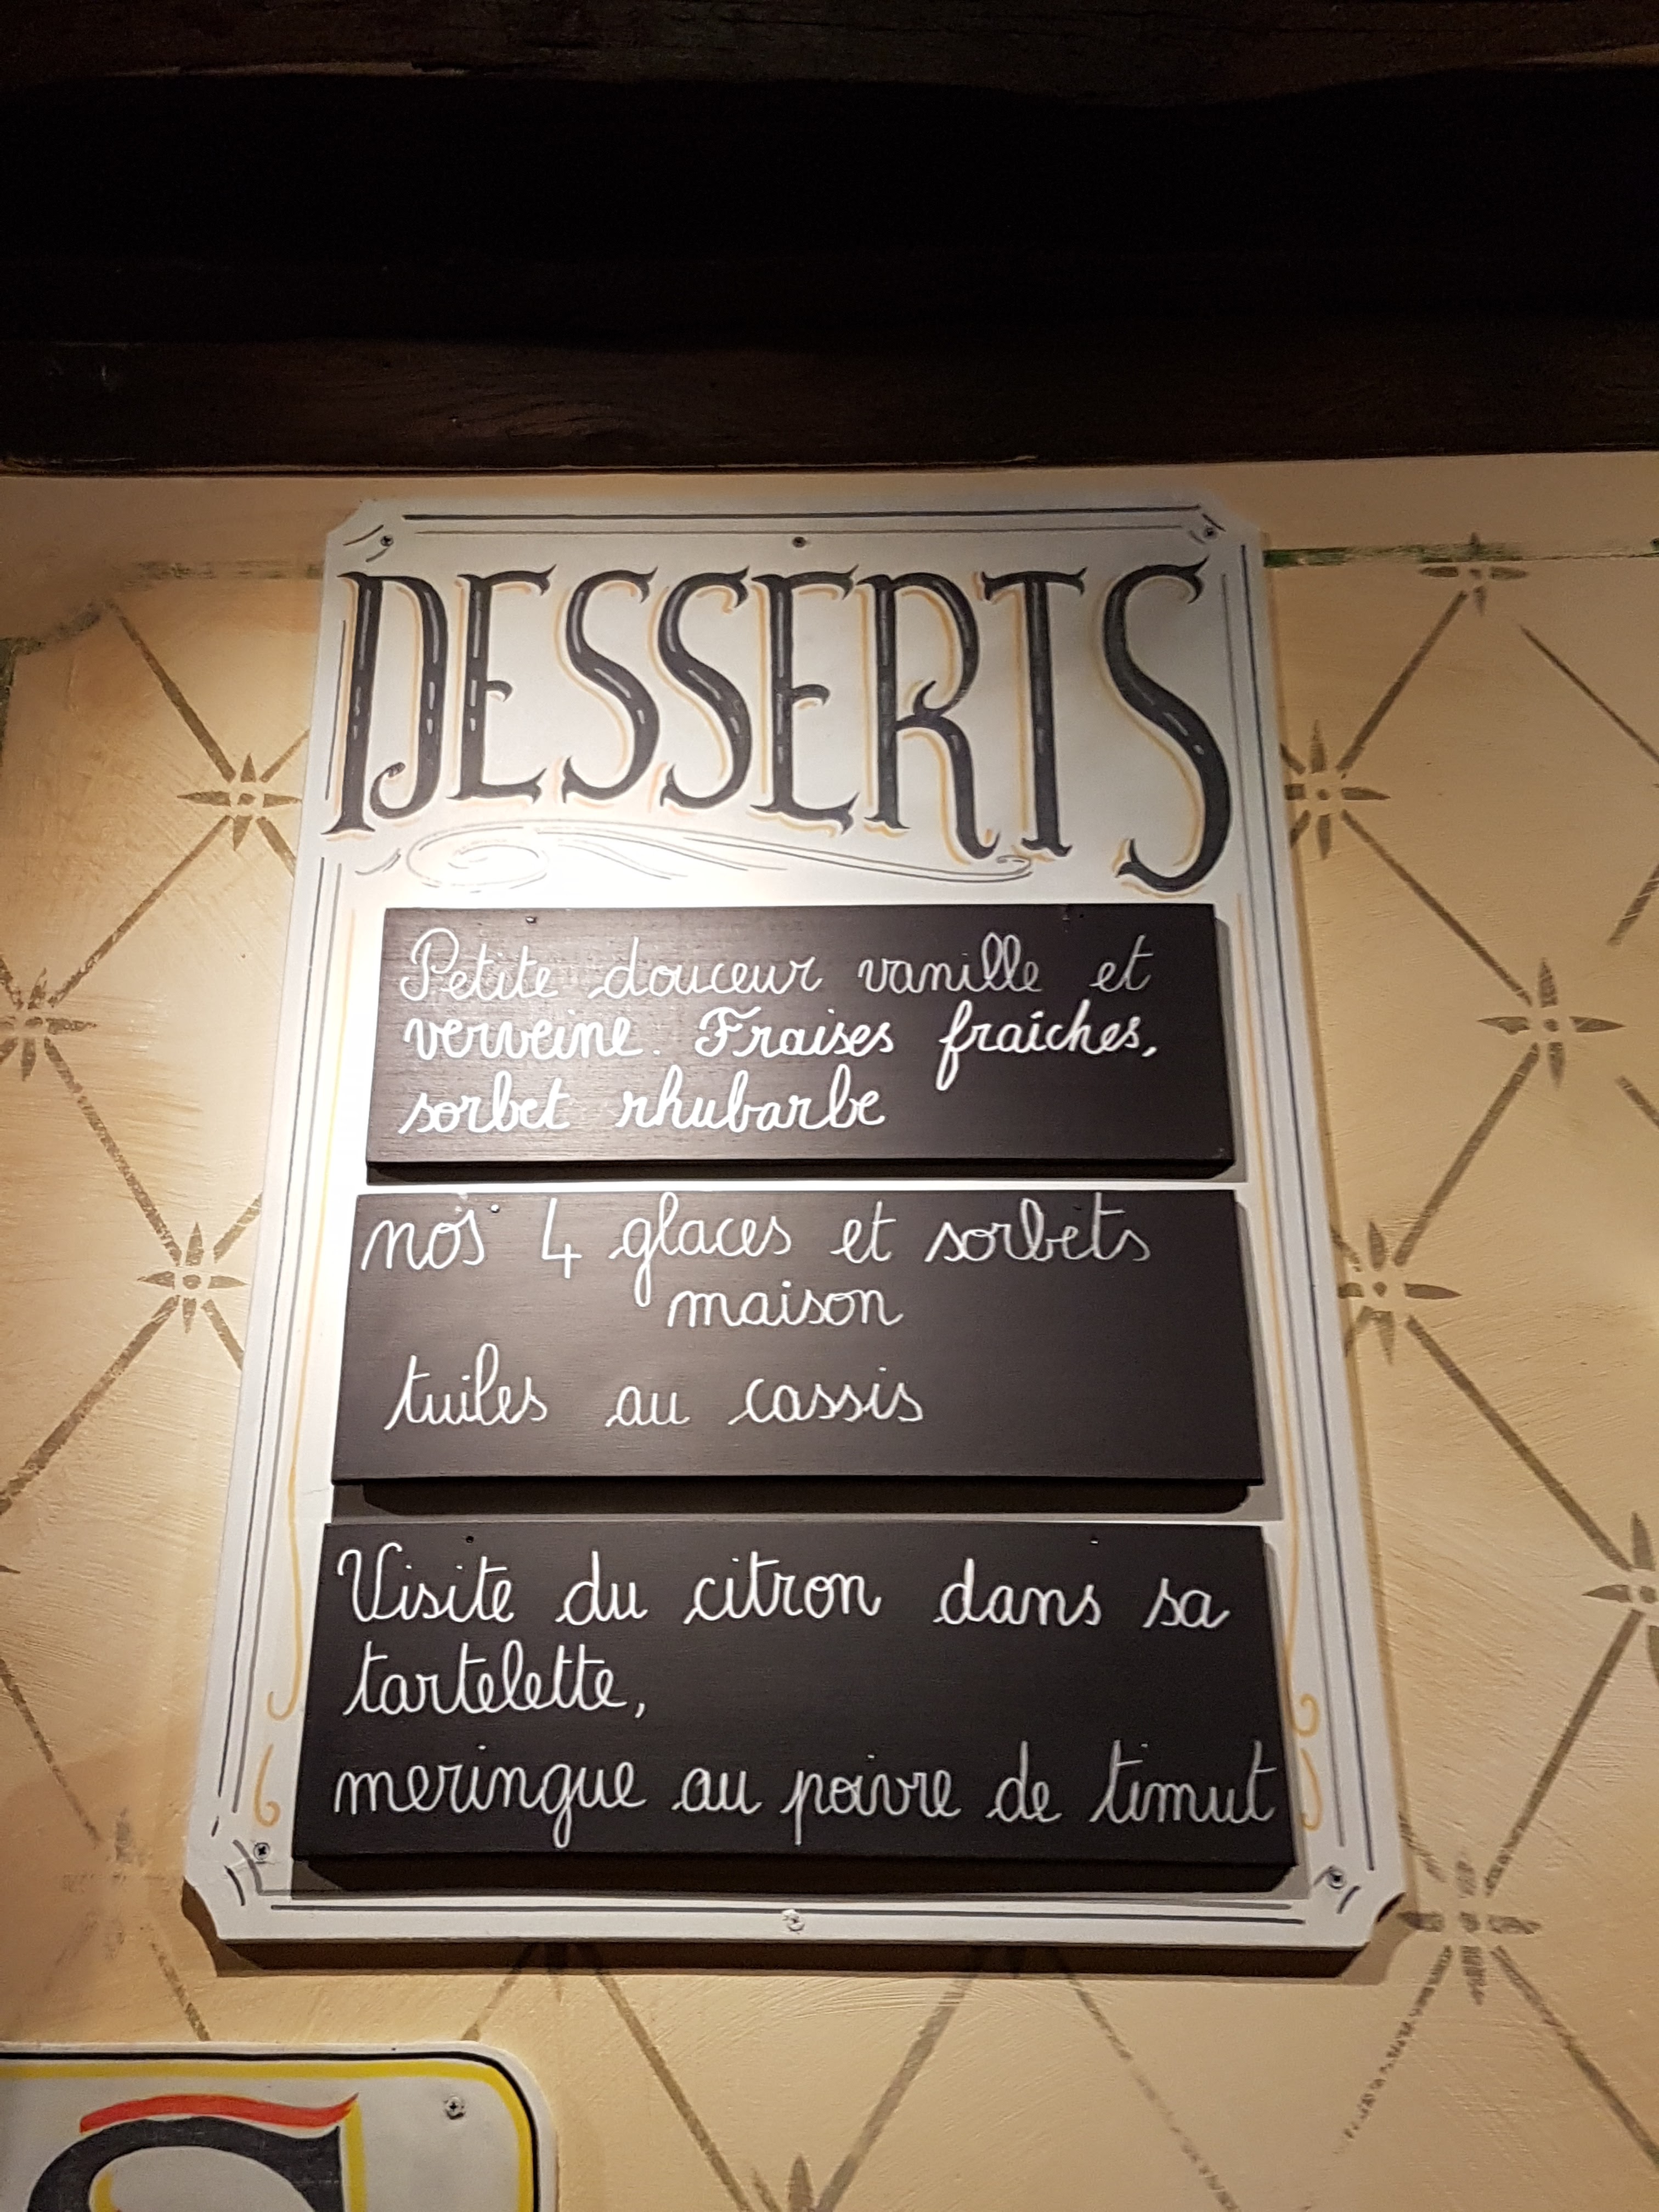 DESSERTS
Petite douceur vanille et
verveine. Fraises fraîches,
sorbet rhubarbe
nos 4 glaces et sorbets
maison
tuiles au cassis
Visite du citron dans sa
tartelette,
meringue au poivre de timut